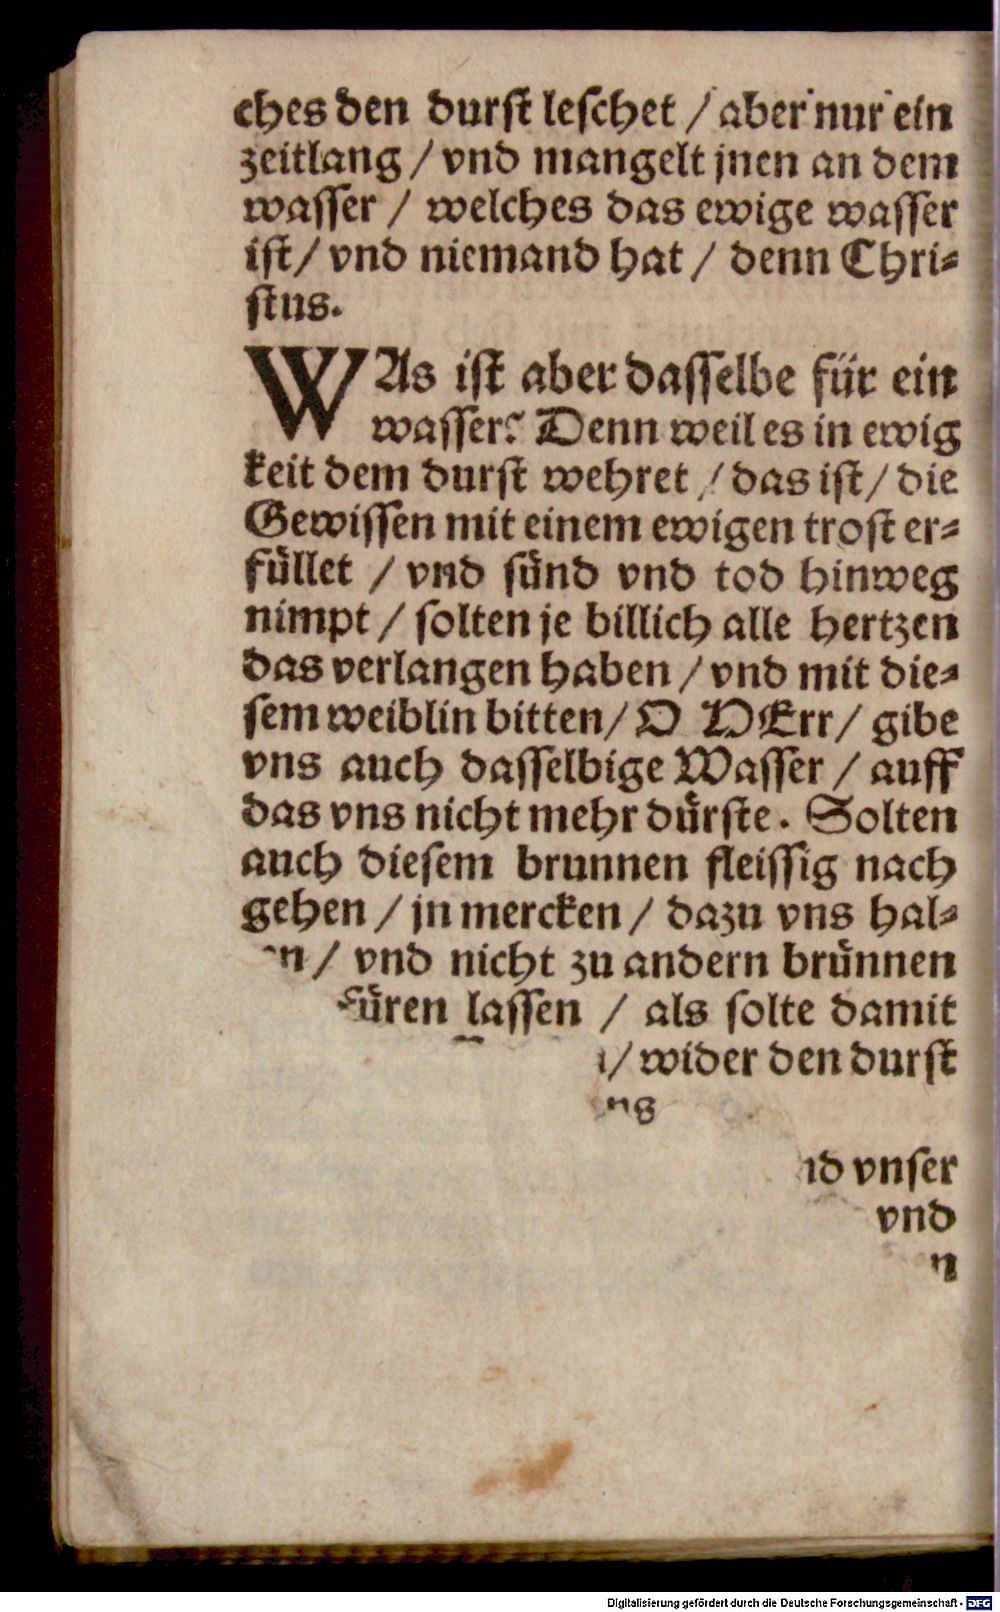 ches den durst leschet / aber nur ein
zeitlang / vnd mangelt jnen an dem
wasser / welches das ewige wasser
ist / vnd niemand hat / denn Chri⸗
stus.
WAs ist aber dasselbe für ein
wasser? Denn weil es in ewig
keit dem durst wehret / das ist / die
Gewissen mit einem ewigen trost er⸗
füllet / vnd sünd vnd tod hinweg
nimpt / solten je billich alle hertzen
das verlangen haben / vnd mit die⸗
sem weiblin bitten / O HErr / gibe
vns auch dasselbige Wasser / auff
das vns nicht mehr dürste. Solten
auch diesem brunnen fleissig nach
gehen / jn mercken / dazu vns hal⸗
/ vnd nicht zu andern brünnen
füren lassen / als solte damit
/ wider den durst
vnser
vnd
Digitalisierung gefördert durch die Deutsche Forschungsgemeinschaft - DFG